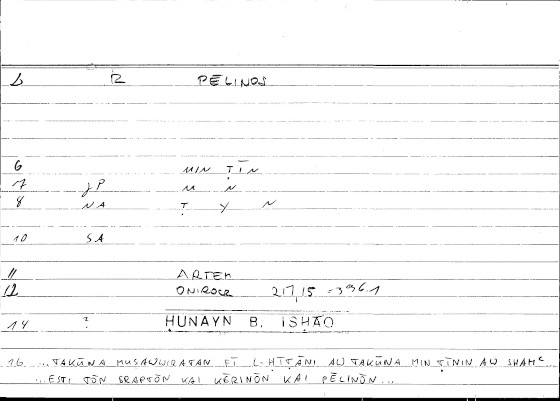 1 12 PĒLINOS
6 MIN ṬĪN
7 JP M N
8 NA Ṭ Y N
10 SA
11 ARTEM
12 ONIROCR 217,15 = 396.1
14 ? ḤUNAYN B. ISḤĀQ
16 ...TAKŪNA MUSAWWIRATAN FĪ L-ḤĪṬĀNI AU TAKŪNA MIN ṬĪNIN AU SHAMᶜ...
...ESTI TŌN GRAPTŌN KAI KĒRINŌN KAI PĒLINŌN...